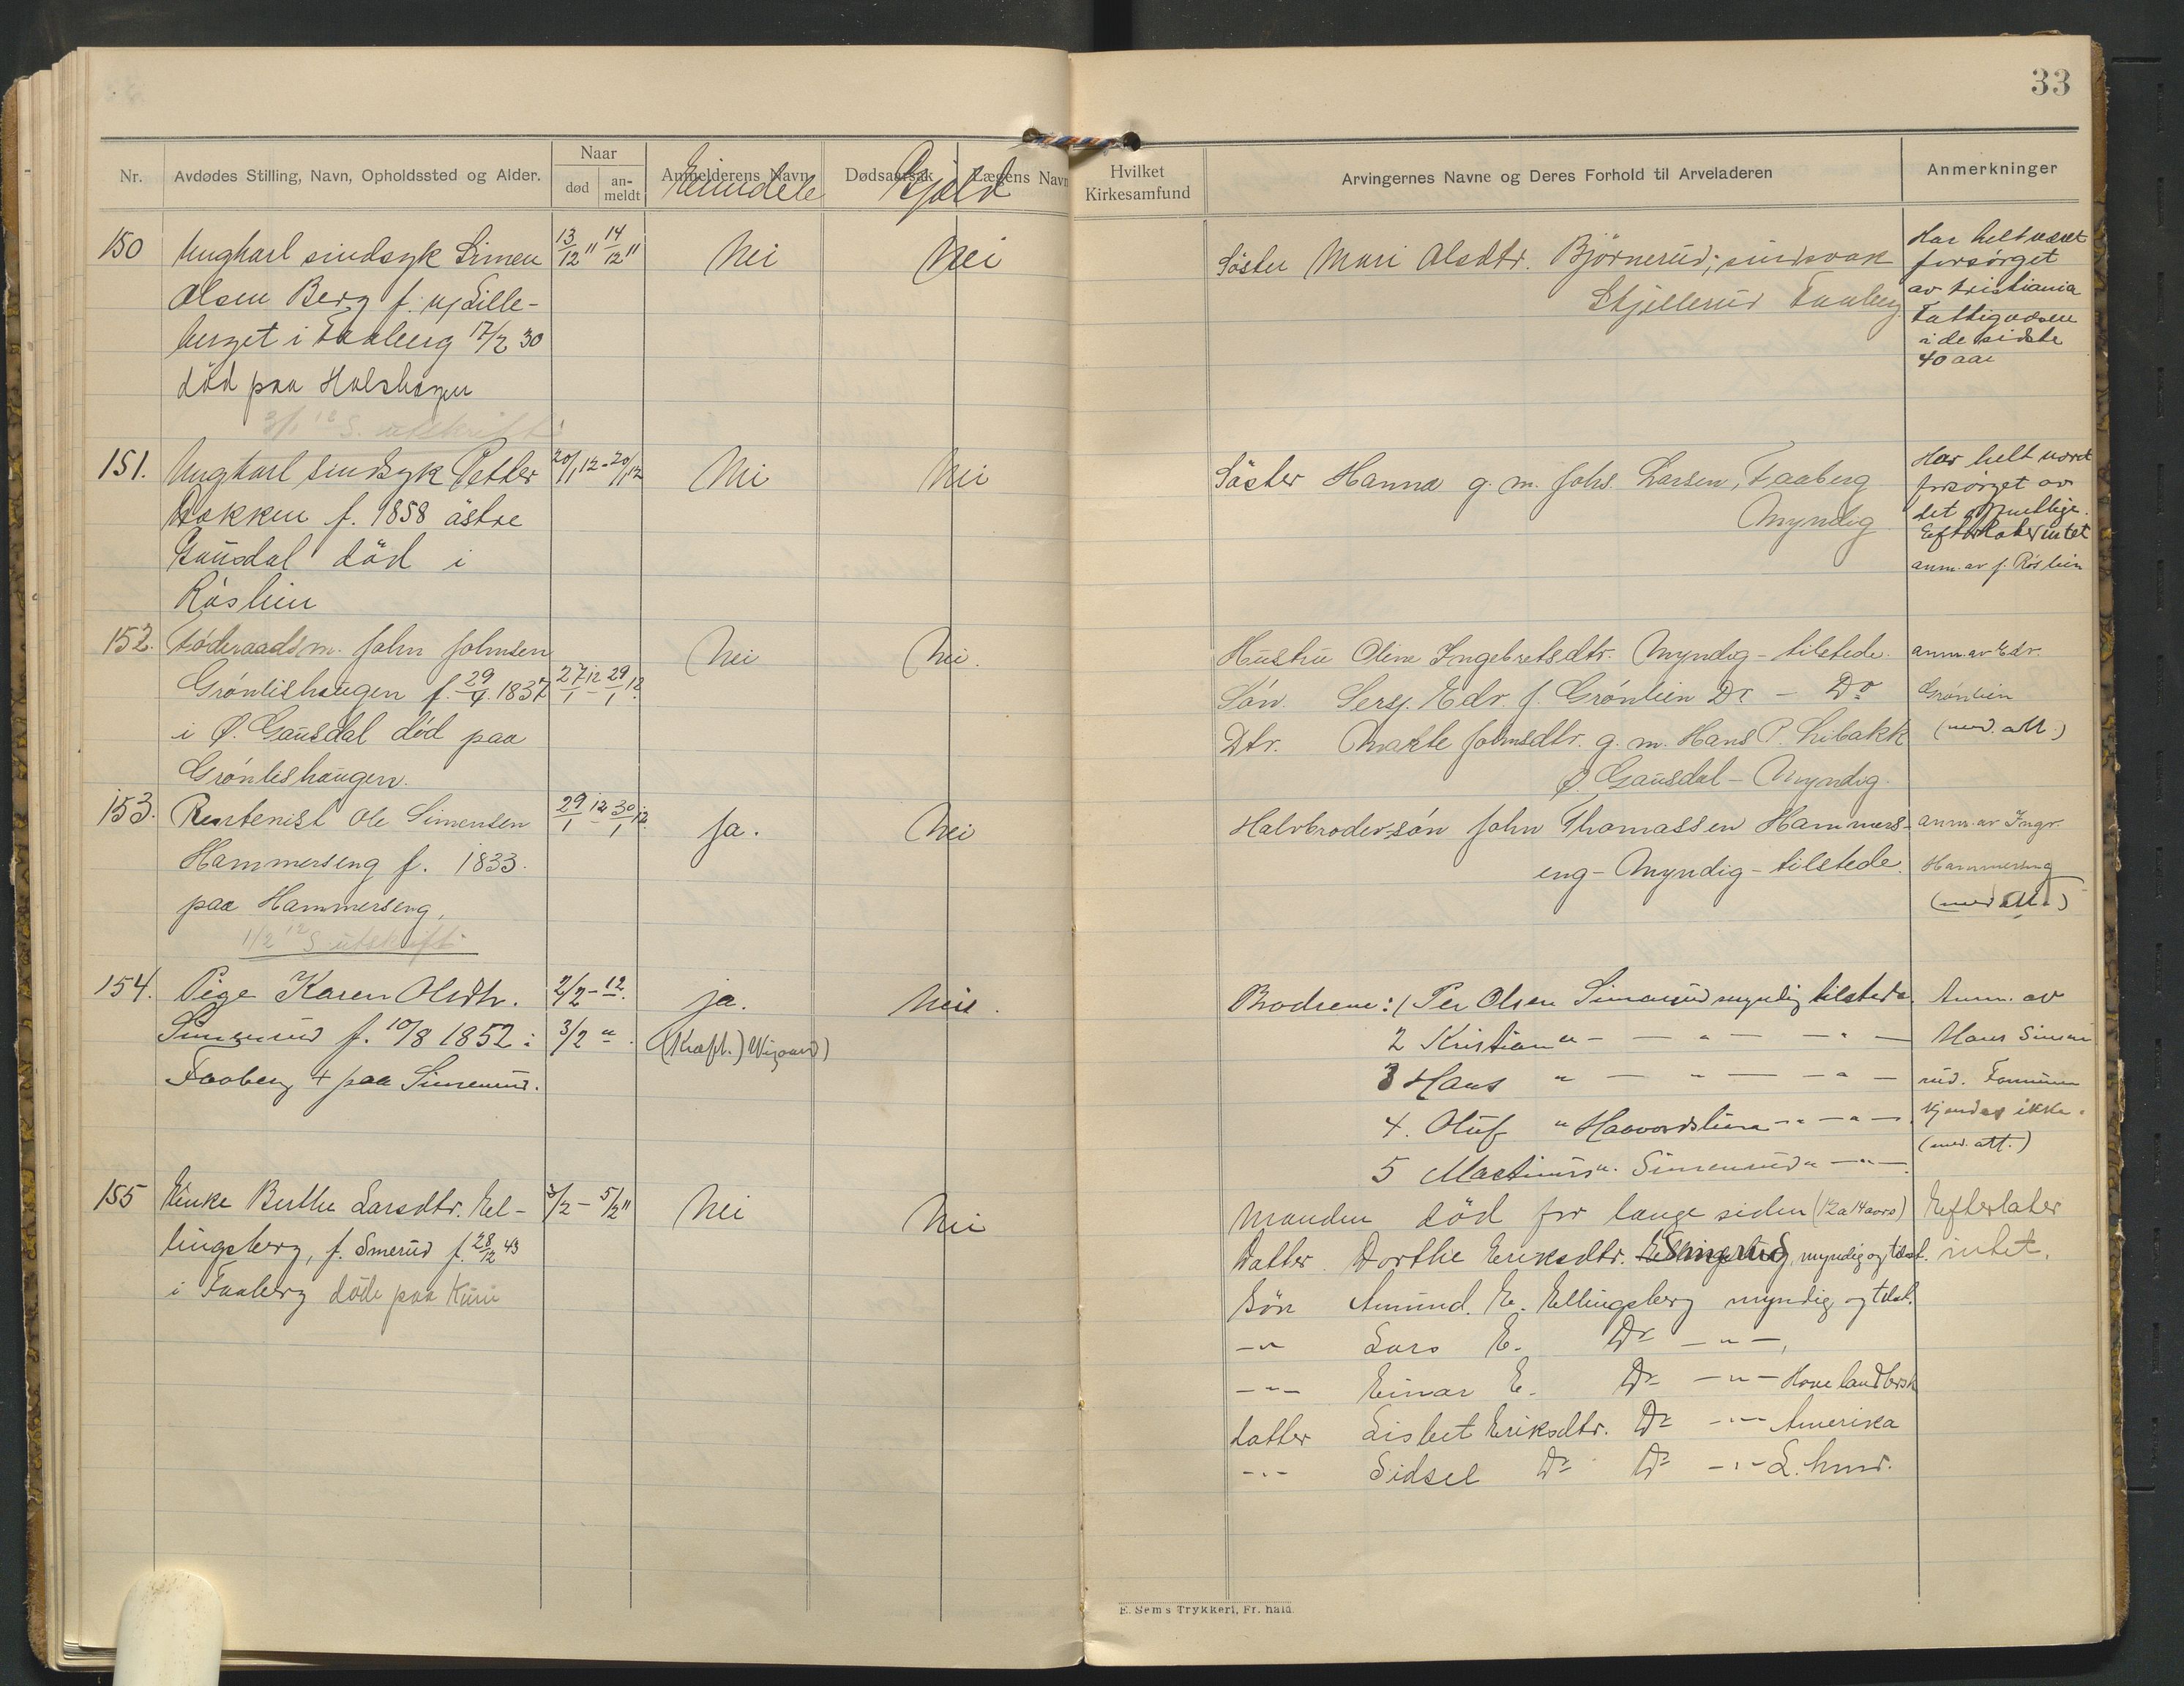 33
Nr.
Avdødes Stilling, Navn, Opholdssted og Alder.
Naar
død
an-
meldt
Anmelderens Navn
Eiendele
Dødsaarsak
Gjæld
Lægens Navn
Hvilket
Kirkesamfund
Arvingernes Navne og Deres Forhold til Arveladeren
Anmerkninger
150
Ungkarl sindsyk Simen
Olsen Berg f. i Lille-
berget i Faaberg 17/2 30
död paa Holshagen
3/1 12 S. utskrift
13/12 11
14/12 11
Nei
Nei
Söster Mari Olsdtr. Björnerud; sindsvak
Skjellerud Faaberg
Har helt været
forsörget
av Kristiania
Fattigvæsen
i de sidste
40 aar
151.
Ungkarl sindsyk Petter
Bakken f. 1858 östre
Gausdal död i
Röslien
20/1 12 - 20/1 12
Nei
Nei
Söster Hanna g. m. Johs. Larsen, Faaberg
Myndig
Har helt været
forsörget av
det offentlige.
Efterlater intet
anm. av J. Röslien
152.
Föderaadsm. John Johnsen
Grönlishaugen f. 29/9 1837
i Ø. Gausdal död paa
Grönlishaugen.
27/1 12 - 29/1 12.
Nei
Nei.
Hustru Oline Ingebretsdtr. Myndig - tilstede.
Sön. Sersj. Edv. J. Grönlien Do - Do
Dtr. Marte Johnsdtr. g. m. Hans P. Libakk
Ø. Gausdal - Myndig.
anm. av Edv.
Grönlien
(med. att.)
153.
Rentenist Ole Simensen
Hammerseng f. 1833.
paa Hammerseng,
1/2 12 S utskrift.
29/1 12 - 30/1 12.
Ja.
Nei
Halvbroders sön John Thomassen Hammers-
eng - Myndig - tilstede.
anm. av Ingv.
Hammerseng
(med att.)
154.
Pige Karen Olsdtr.
Simenrud f. 10/8 1852 i
Faaberg + paa Simenrud.
2/2 - 12.
3/2 "
ja.
(Kraft.)
Nei.
Brödrene: 1 Per Olsen Simenrud myndig tilstede.
2 Kristian " - - " - - " -
3 Hans " - " - - " -
4. Oluf " Haavordslien - " - " -
5 Martinius ". Simenrud " - " -
Anm. av
Hans Simen
rud. Formuen
kjendes ikke.
(med. att.)
155
Enke Berthe Larsdtr. El-
lingsberg, f. Smerud f. 28/12 43
i Faaberg döde paa Kurii
3/2 - 5/2 11
Nei
Nei
Manden död for lange siden (12 a 14 aars)
Datter. Dorthe Eriksdtr. Smerud, myndig og tilst.
Sön Amund. E. Ellingsberg myndig og tilst.
- " Lars E. Do - " -,
- " - Einar E. Do - " - Hone landbrsk
datter Lisbet Eriksdtr. Do - " - Amerika
- " - Sidsel Do Do - " - L.hmr.
Efterlater
intet.
E. Sem's Trykkeri, Fr. hald.